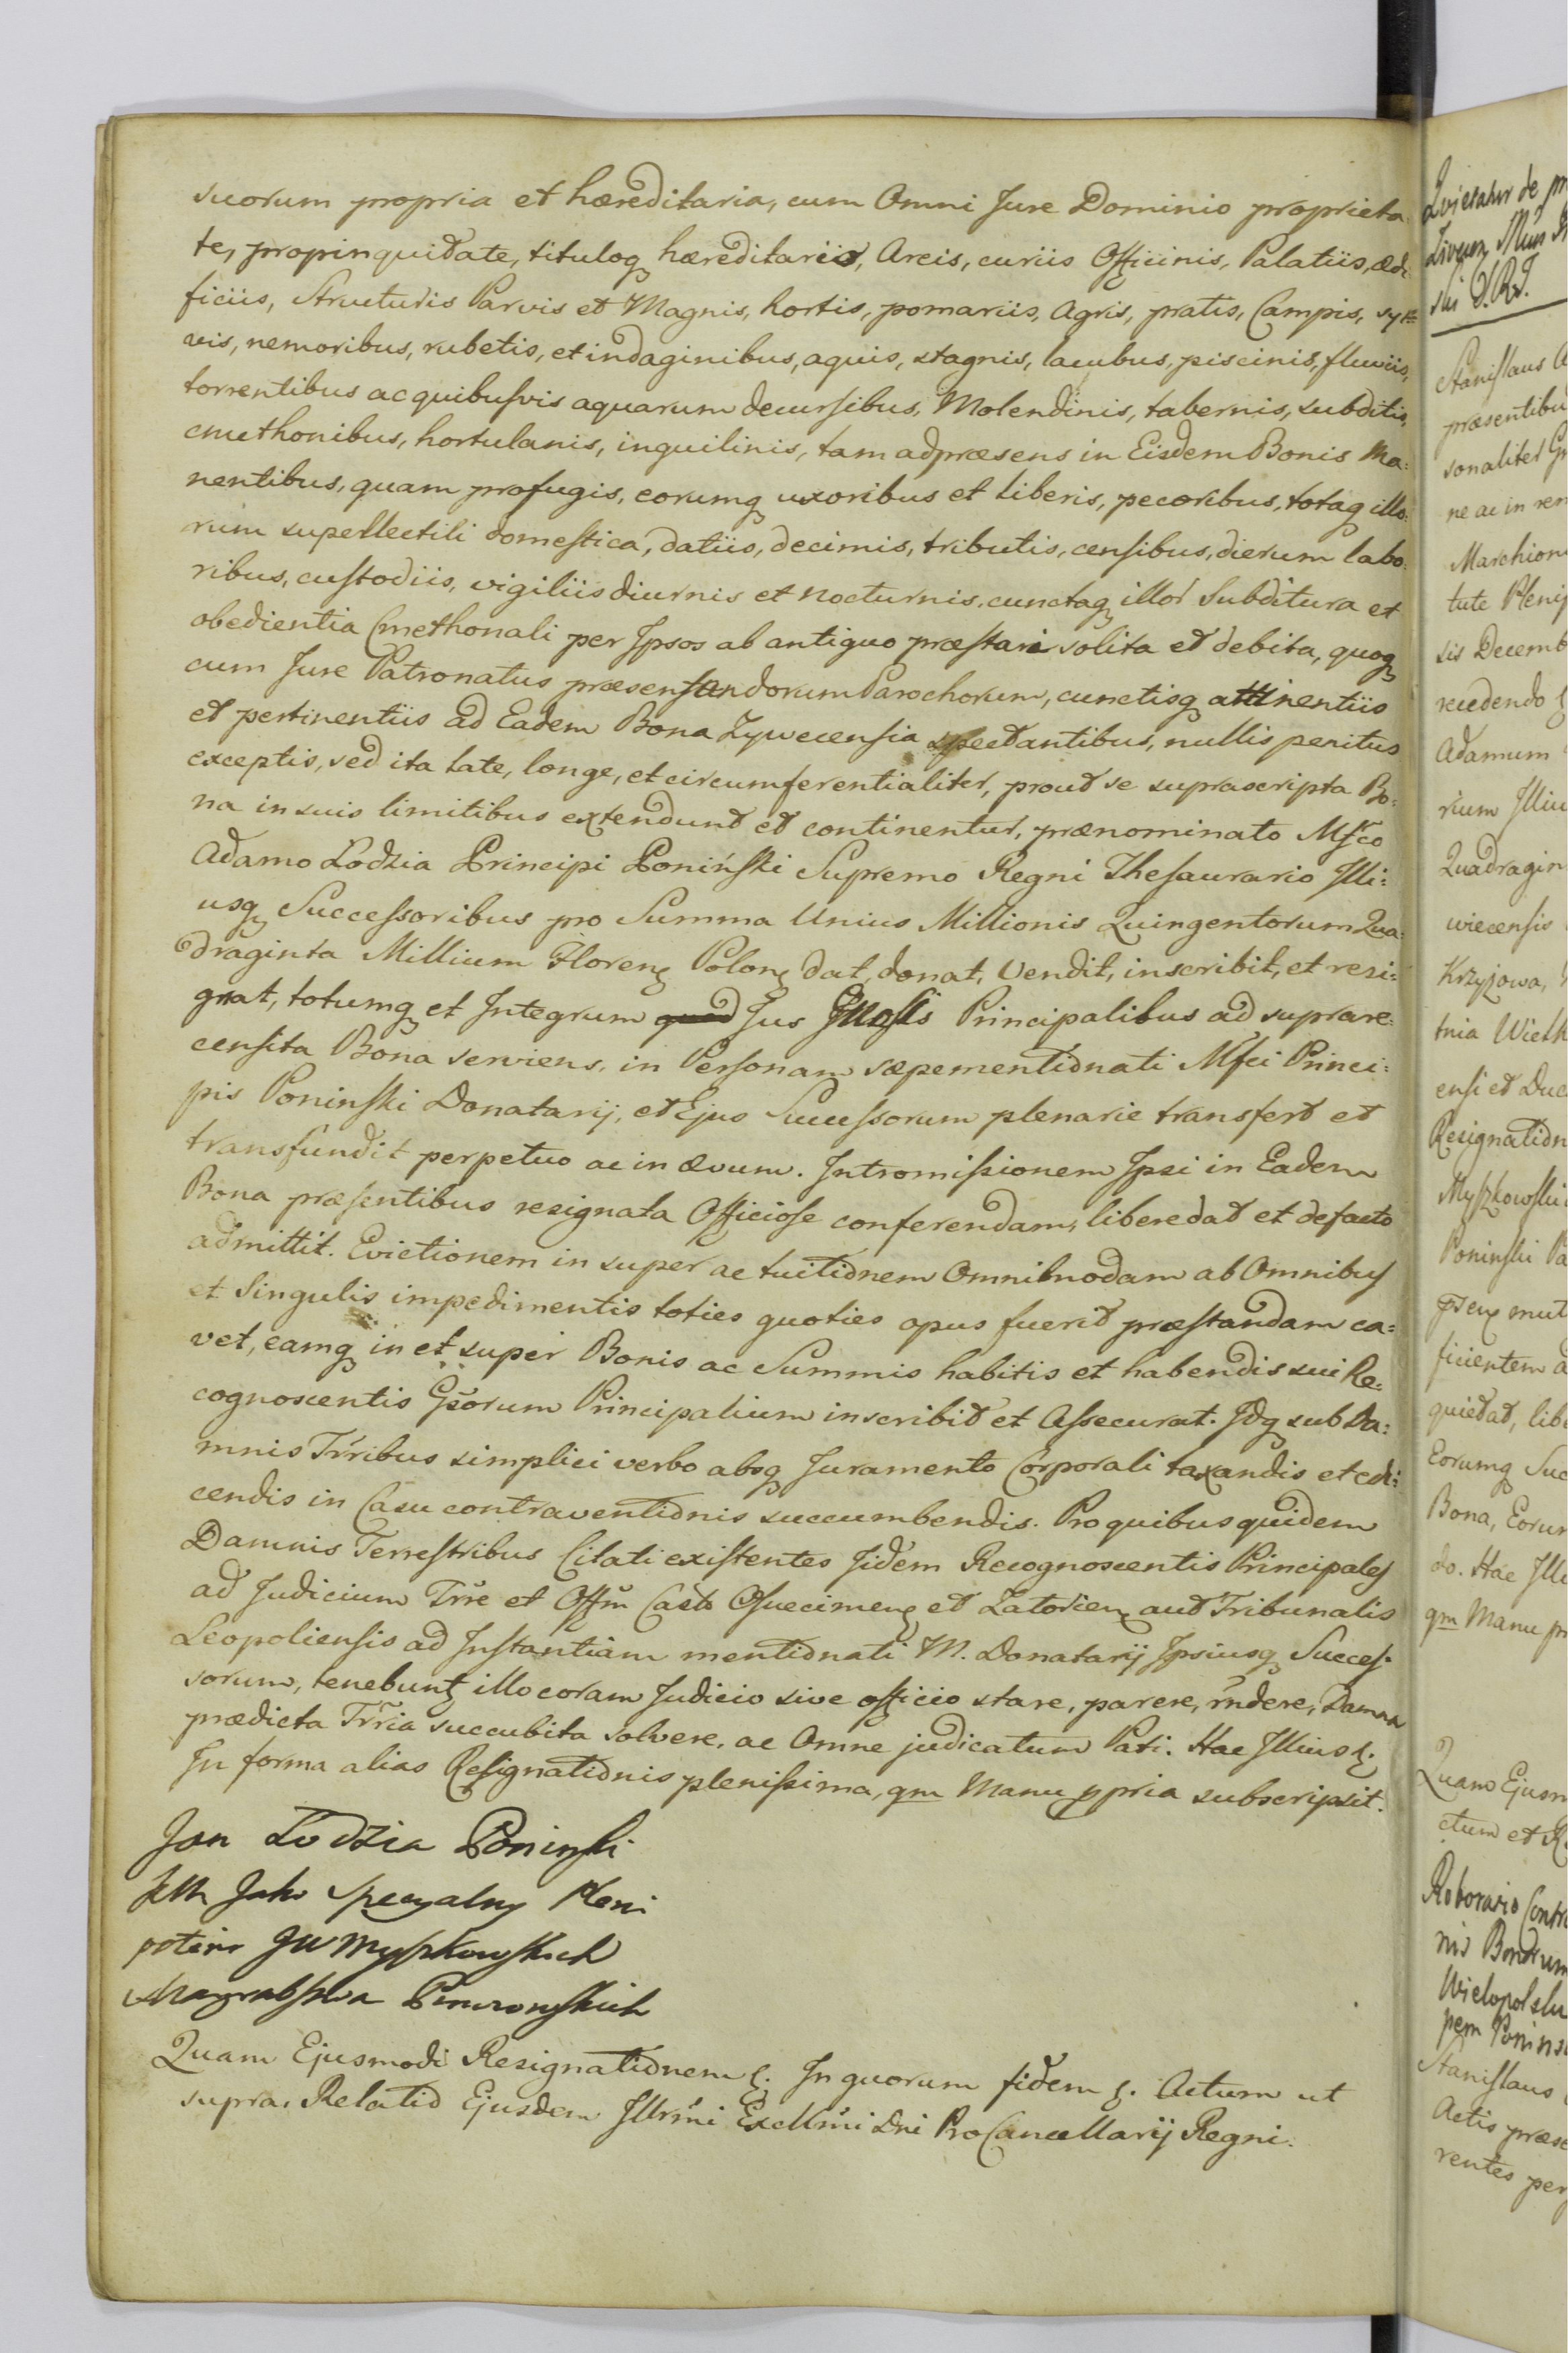 suorum propria et hæreditaria, cum Omni Jure Dominio proprieta
te, propinquitate, tituloq hæreditariis, Arcis, curiis Officinis, Palatiis, ædi
ficiis, Structuris Parvis et Magnis, hortis, pomariis, Agris, pratis, Campis, syl=
vis, nemoribus, rubetis, et indaginibus, aquis, stagnis, lacubus, piscinis, fluviis,
torrentibus ac quibusvis aquarum decursibus, Molendinis, tabernis, subditis,
cmethonibus, hortulanis, inquilinis, tam adpræsens in Eisdem Bonis Ma:
nentibus, quam profugis, eorumq uxoribus et liberis, pecoribus, totaq illo:
rum supellectili domestica, datiis, decimis, tributis, censibus, dierum labo:
ribus, custodiis, vigiliis diurnis et nocturnis, cunctaq illor Subditura et
obedientia Cmethonali per Ipsos ab antiquo præstari solita et debita, quoq
cum Jure Patronatus præsentandorum Parochorum, cunctisq attinentiis
et pertinentiis ad Eadem Bona Zywecensia spectantibus, nullis penitus
exceptis, sed ita late, longe, et circumferentialiter, prout se suprascripta Bo:
na in suis limitibus extendunt et continentur, prænominato Mfco
Adamo Lodzia Principi Poniński Supremo Regni Thesaurario Illi:
usq Successoribus pro Summa Unius Millionis Quingentorum Qua:
draginta Millium Floren Polon dat, donat, Vendit, inscribit, et resi:
gnat, totumq et Integrum quod Jus Principalibus ad suprare:
censita Bona serviens, in Personam sæpementionati Mfci Princi:
pis Poninski Donatarij, et Ejus Successorum plenarie transfert et
transfundit perpetuo ac in ævum. Intromissionem Ipsi in Eadem
Bona præsentibus resignata Officiose conferendam, libere dat et defacto
admittit. Evictionem in super ac tuitionem Omnimodam ab Omnibus
et Singulis impedimentis toties quoties opus fuerit præstandam ca=
vet, eamq in et super Bonis ac Summis habitis et habendis sui Re:
cognoscentis Gsorum Principalium inscribit et Assecurat. Idq sub Da:
mnis Trribus simplici verbo absq Juramento Corporali taxandis et edi:
cendis in Casu contraventionis succumbendis. Pro quibus quidem
Damnis Terrestribus Citati existentes Iidem Recognoscentis Principales
ad Judicium Trre et Offm Castr Osuecimen et Zatorien aut Tribunalis
Leopoliensis ad Instantiam mentionati M. Donatarij Ipsiusq Succes:
sorum, tenebunt illo coram Judicio sive officio stare, parere, rndere, Damna
prædicta Trria succubita solvere, ac Omne judicatum Pati. Hac Illius
In forma alias Resignationis plenissima, qm Manu ppria subscripsit.
Jan Lodzia Poninski
Jako Specyalny Pleni
potent JW Myszkowskich
Margrabstwa Pinczowskich
Quam Ejusmodi Resignationem. In quorum fidem. Actum ut
supra. Relatio Ejusdem Illrmi Excllmi Dni ProCancellarij Regni.
Quietatur de
Stanislaus
præsentibu
sonaliter
ne ac in rem
Marchion
tute Plenip
sis Decemb
recedendo
Adamum
rium Illiu
Quadragin
wiecensis
Krzyzowa,
tnia Wielk
ensi et Duc
Resignation
Myszkowski
Poninski Pa
ficientem a
quietat, lib
Eorumq Suc
Bona, Eorum
do. Hac Illi
qm Manu pr
Quam Ejusm
ctum et R
Roboratio Contra
nis Bonorum
Wielopolski
pem Ponins
Stanislaus
Actis præse
rentes per